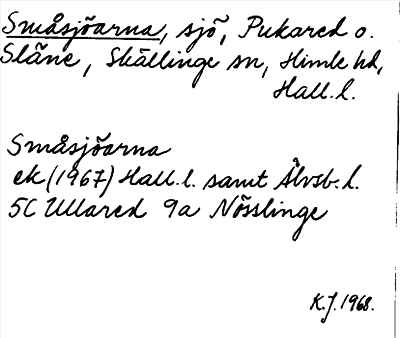 Småsjöarna, sjö, Pukared o.
Släne, Skällinge sn, Himle hd,
Hall. l.
Småsjöarna
ek (1967) Hall. l. samt Älvsb. l.
5C Ullared 9a Nösslinge
K.J. 1968.